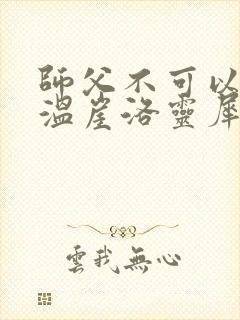 師父不可以
溫崖洛靈犀
雲我無心